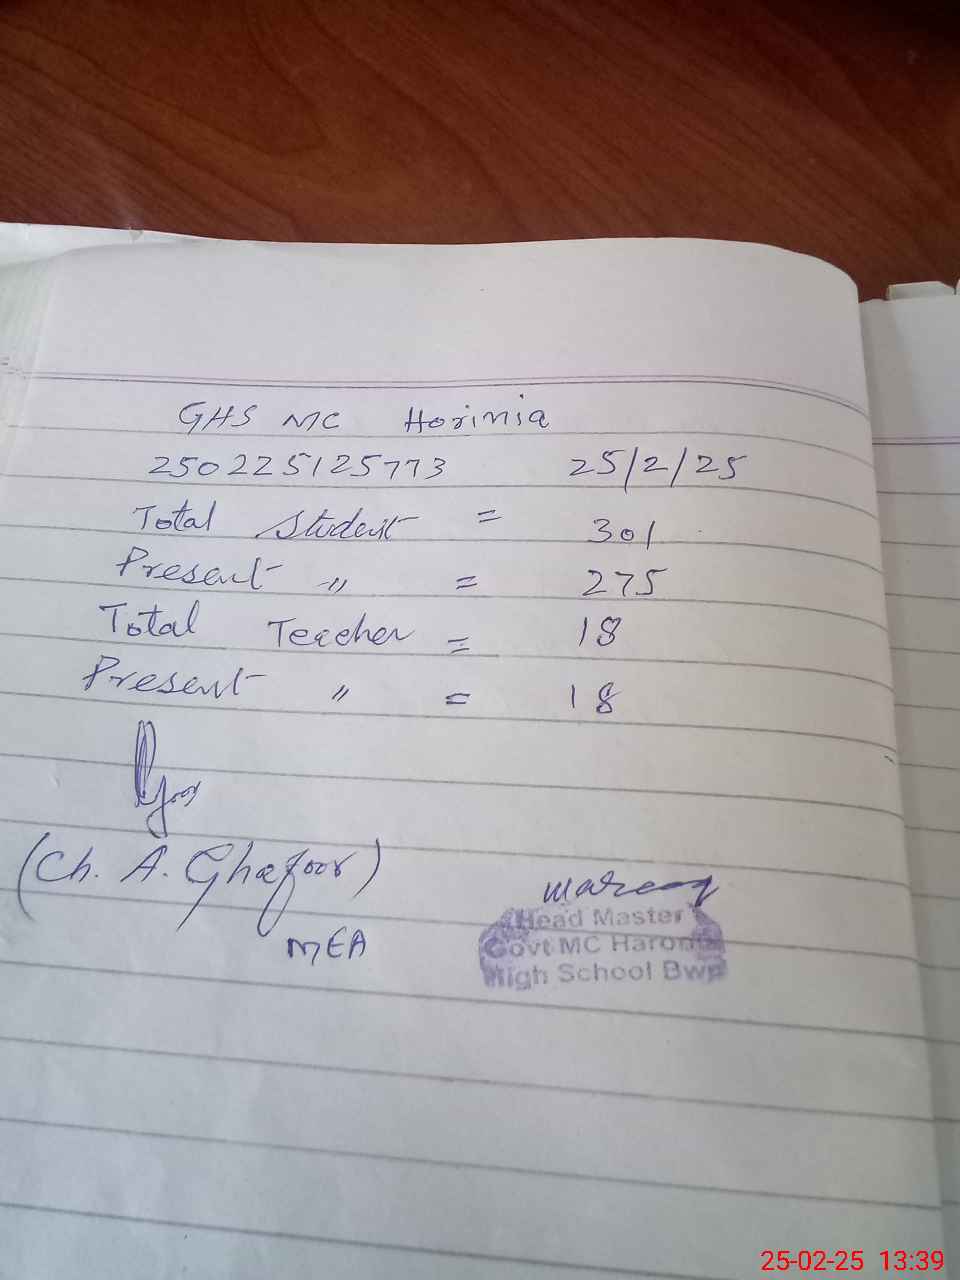 GHS MC Horinia
250225125773 25/2/25
Total Student = 301
Present " = 275
Total Teacher = 18
Present " = 18
(Ch. A. Ghafoor)
MEA
Head Master
Govt MC Haronia
High School Bwp
25-02-25 13:39